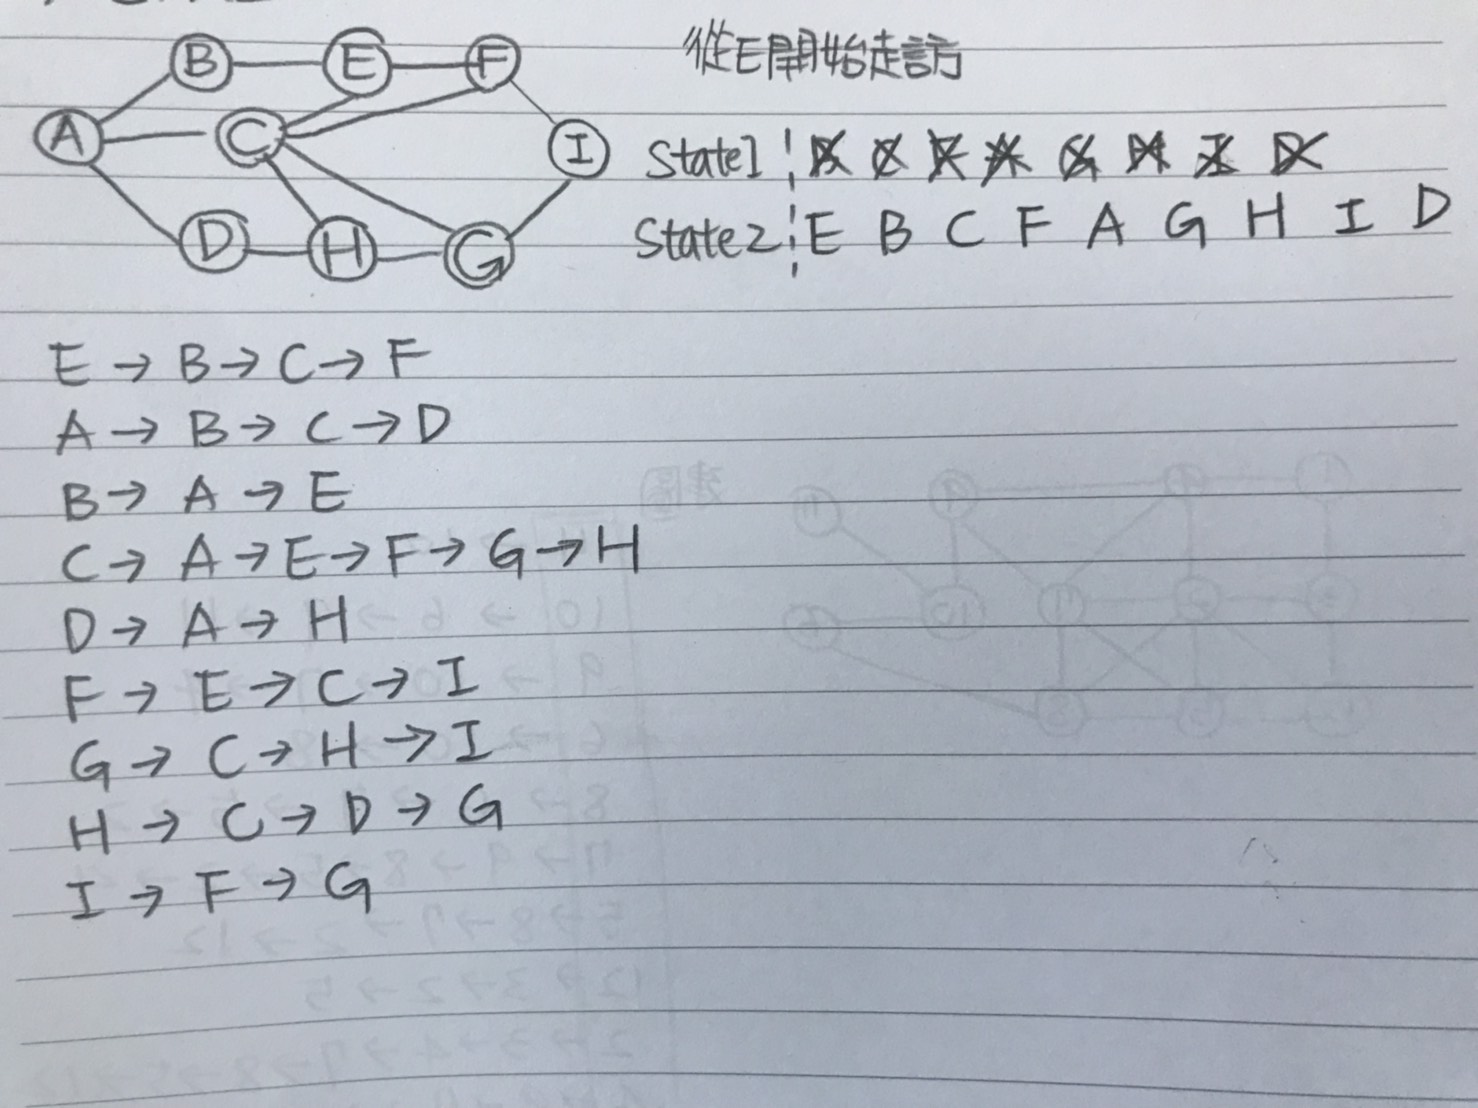 B E F
從E開始走訪
A C I
State1 ¦ B C F A G H I D
State2 ¦ E B C F A G H I D
D H G
E → B → C → F
A → B → C → D
B → A → E
C → A → E → F → G → H
D → A → H
F → E → C → I
G → C → H → I
H → C → D → G
I → F → G